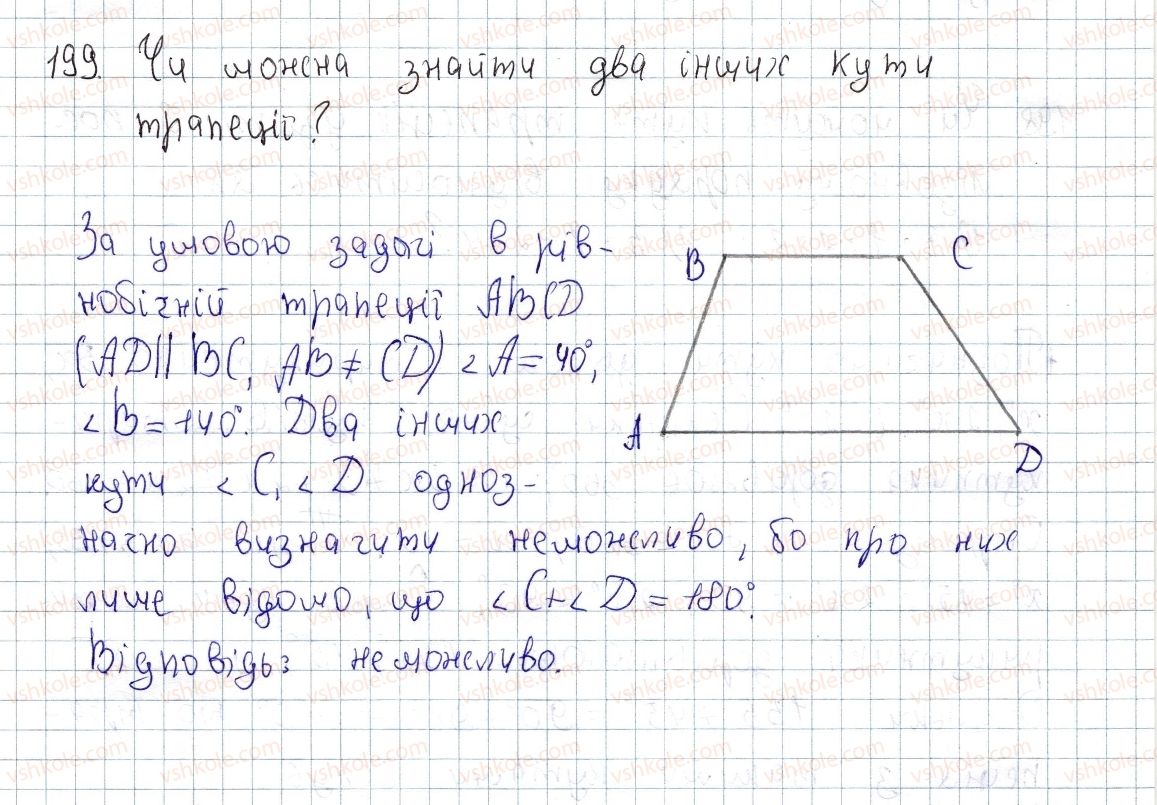 199. Чи можна знайти два інших кути
трапеції?
За умовою задачі в рів-
нобічній трапеції ABCD
(AD || BC, AB ≠ CD) ∠A = 40°,
∠B = 140°. Два інших
кути ∠C, ∠D одноз-
начно визначити неможливо, бо про них
лише відомо, що ∠C + ∠D = 180°.
Відповідь: неможливо.
B
C
A
D
vshkole.com